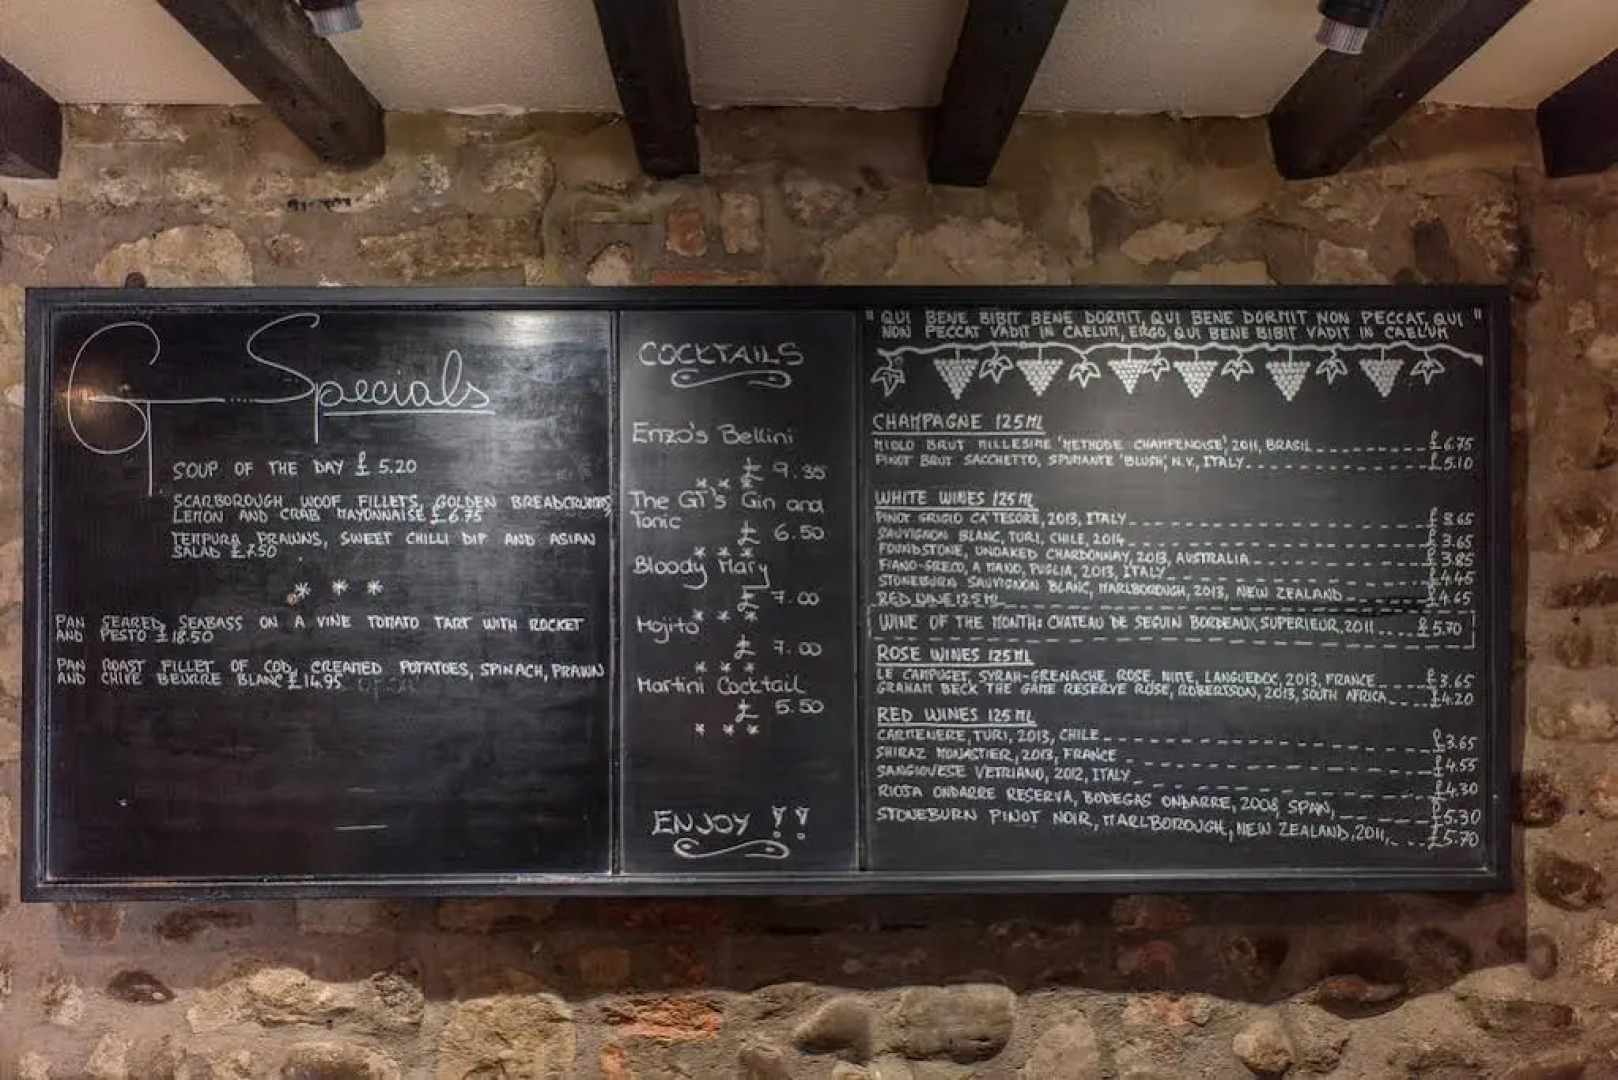 GT Specials
SOUP OF THE DAY £ 5.20
SCARBOROUGH WOOF FILLETS, GOLDEN BREADCRUMBS,
LEMON AND CRAB MAYONNAISE £ 6.75
TEMPURA PRAWNS, SWEET CHILLI DIP AND ASIAN
SALAD £7.50
* * *
PAN SEARED SEABASS ON A VINE TOMATO TART WITH ROCKET
AND PESTO £18.50
PAN ROAST FILLET OF COD, CREAMED POTATOES, SPINACH, PRAWN
AND CHIVE BEURRE BLANC £14.95
COCKTAILS
Enzo's Bellini
£ 9.35
* * *
The GT's Gin and
Tonic
£ 6.50
* * *
Bloody Mary
£ 7.00
* * *
Mojito
£ 7.00
* * *
Martini Cocktail
£ 5.50
* * *
ENJOY !!
" QUI BENE BIBIT BENE DORMIT, QUI BENE DORMIT NON PECCAT, QUI "
NON PECCAT VADIT IN CAELUM, ERGO, QUI BENE BIBIT VADIT IN CAELUM
CHAMPAGNE 125 ML
MIOLO BRUT MILLESIME 'METHODE CHAMPENOISE', 2011, BRASIL £6.75
PINOT BRUT SACCHETTO, SPUMANTE 'BLUSH', N.V., ITALY £5.10
WHITE WINES 125 ML
PINOT GRIGIO CA'TESORE, 2013, ITALY £ 3.65
SAUVIGNON BLANC, TURI, CHILE, 2014 £3.65
FOUNDSTONE, UNOAKED CHARDONNAY, 2013, AUSTRALIA £3.85
FIANO-GRECO, A MANO, PUGLIA, 2013, ITALY £4.45
STONEBURN SAUVIGNON BLANC, MARLBOROUGH, 2013, NEW ZEALAND £4.65
RED WINE 125 ML
WINE OF THE MONTH: CHATEAU DE SEGUIN BORDEAUX SUPERIEUR, 2011 £ 5.70
ROSE WINES 125 ML
LE CAMPUGET, SYRAH-GRENACHE ROSE, NIME, LANGUEDOC, 2013, FRANCE £3.65
GRAHAM BECK THE GAME RESERVE ROSE, ROBERTSON, 2013, SOUTH AFRICA £4.20
RED WINES 125 ML
CARMENERE, TURI, 2013, CHILE £3.65
SHIRAZ MONASTIER, 2013, FRANCE £4.55
SANGIOVESE VETRIANO, 2012, ITALY £4.30
RIOJA ONDARRE RESERVA, BODEGAS ONDARRE, 2008, SPAIN, £5.30
STONEBURN PINOT NOIR, MARLBOROUGH, NEW ZEALAND, 2011, £5.70